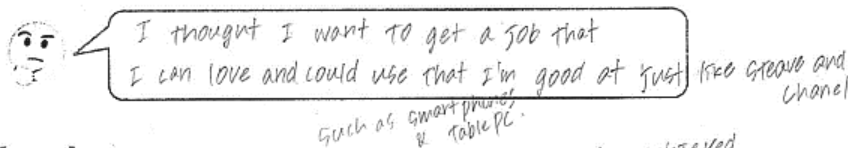 I thought I want to get a job that
I can love and could use that I'm good at just like Steave and
Chanel
such as smart phones
& Table PC.